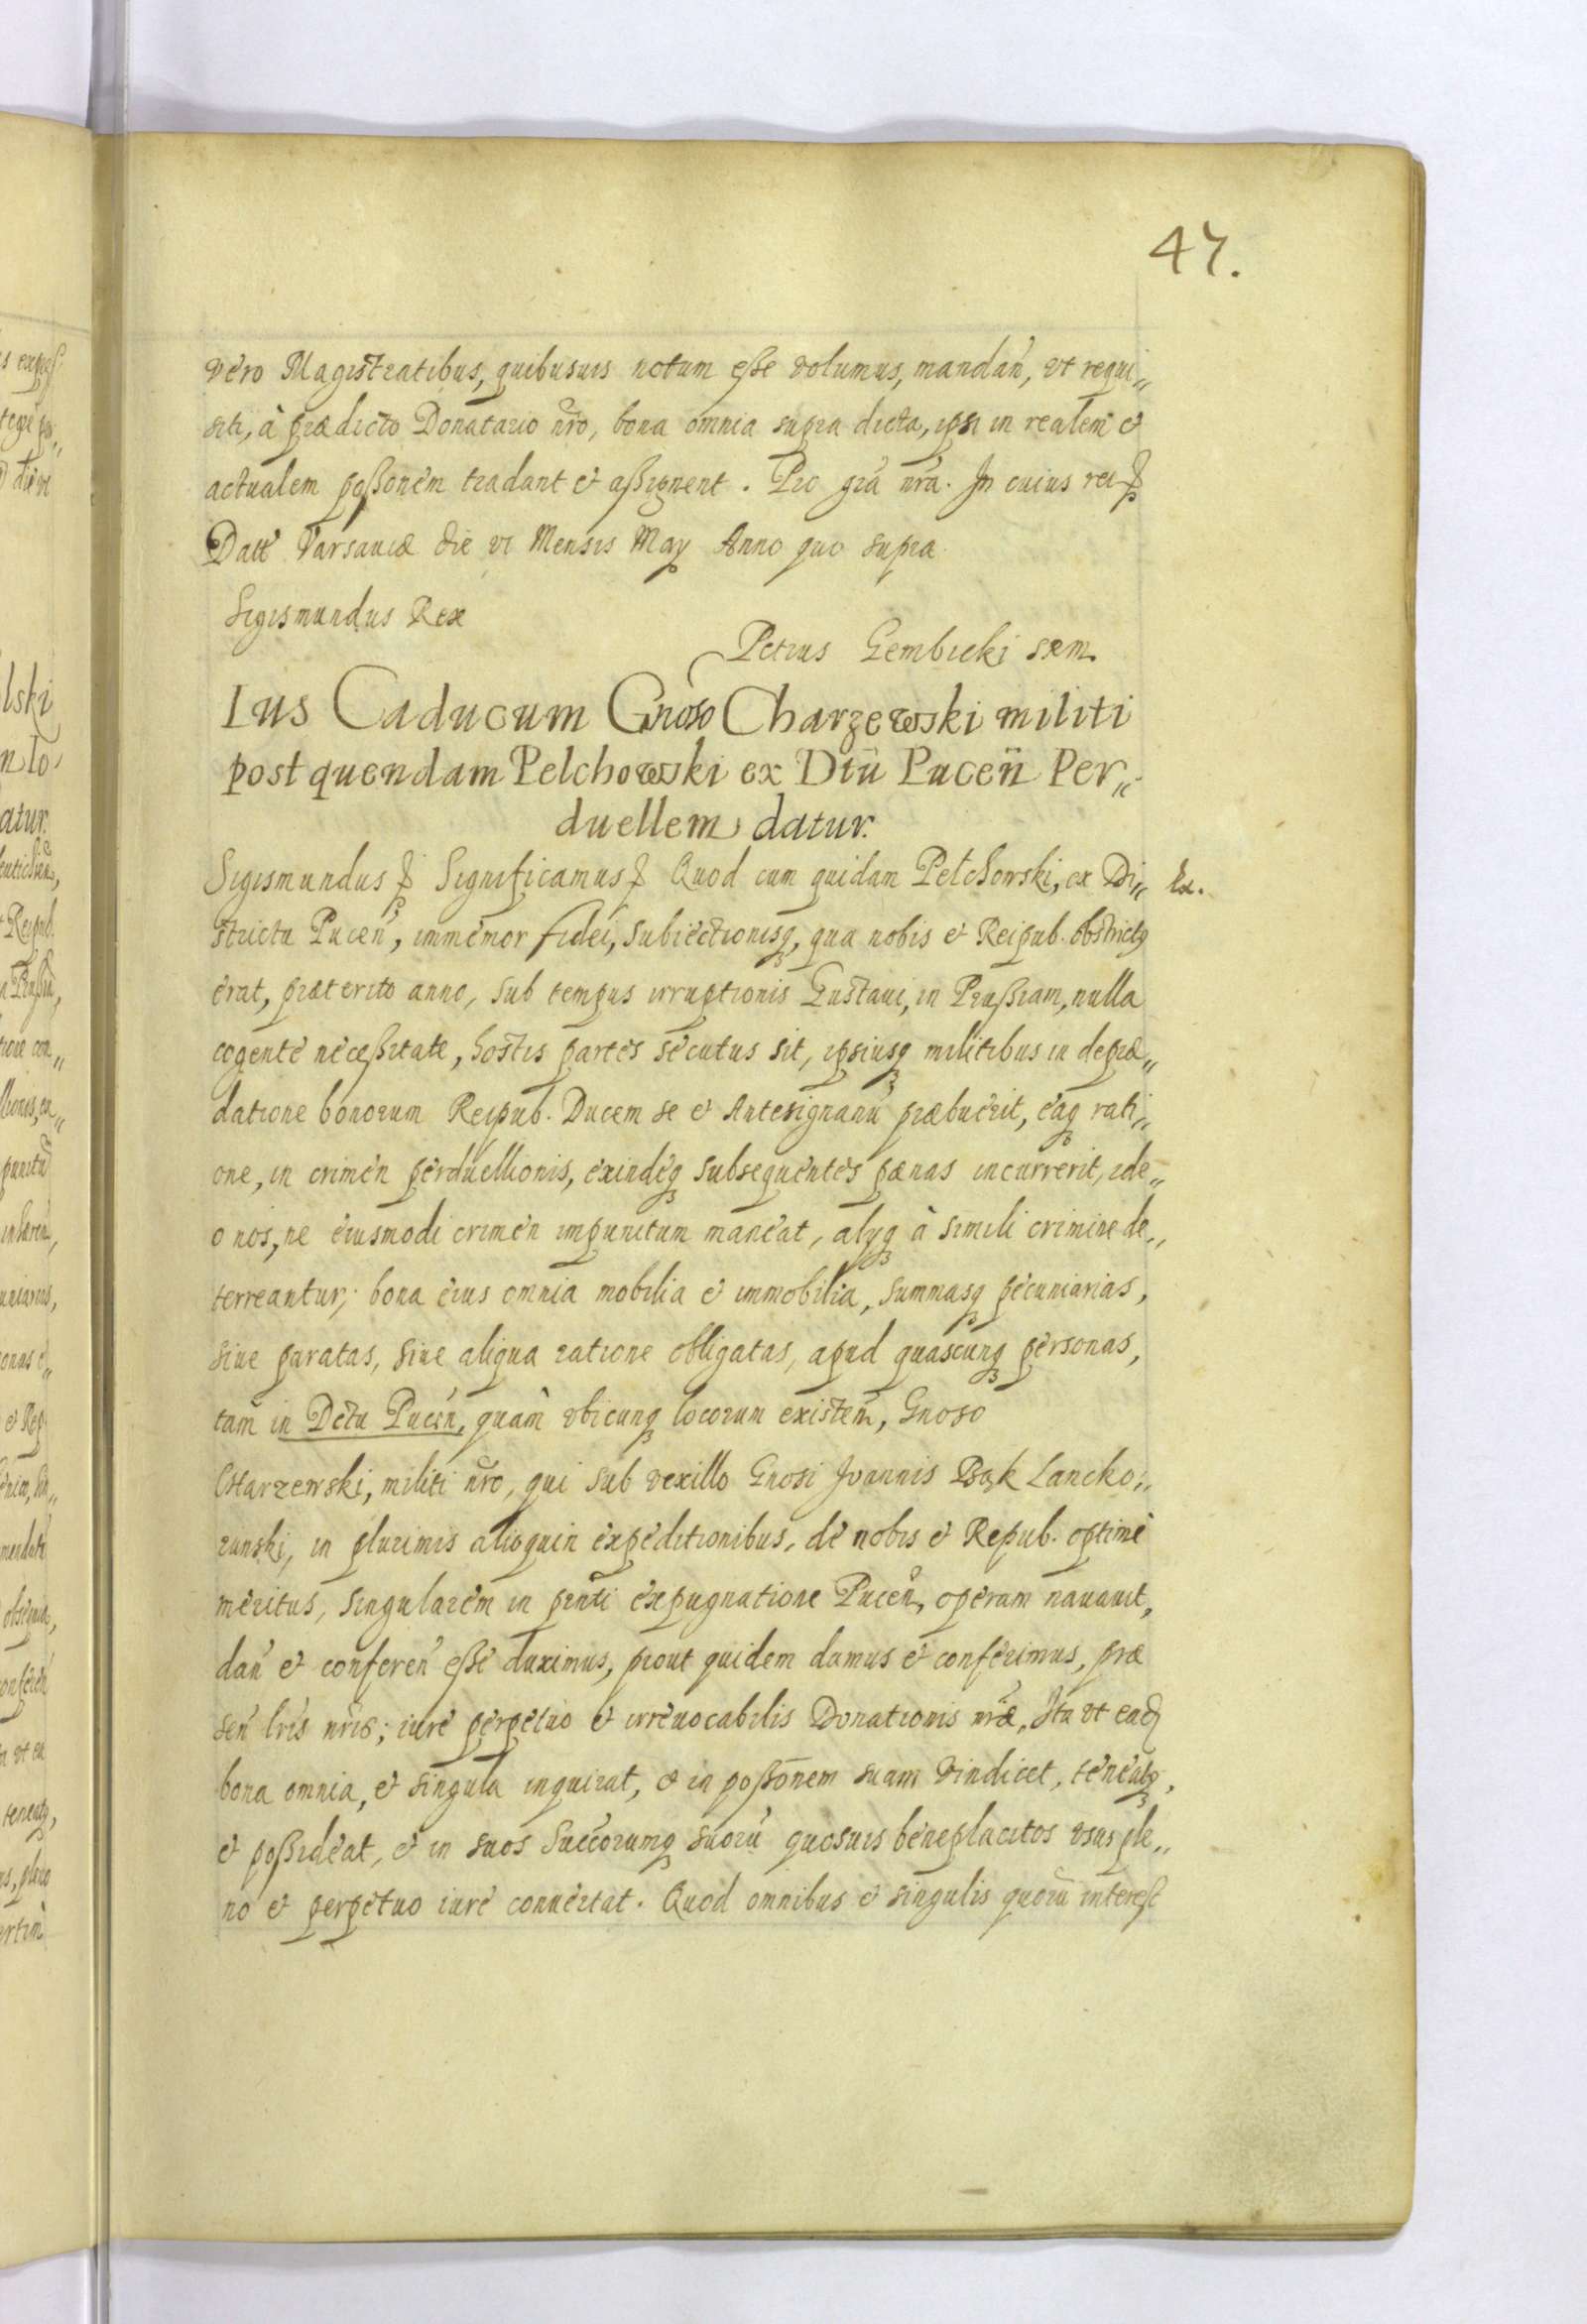 47.
vero Magistratibus, quibusuis notum esse volumus, mandan̄, vt requi„
siti, à prædicto Donatario nr̃o, bona omnia supra dicta, ipsi in realem et
actualem possonem tradant et assignent. Pro gr̃a nr̃a. In cuius rei
Datt Varsauiæ die vi Mensis Maÿ Anno quo supra
Sigismundus Rex
Petrus Gembicki
Ius Caducum Gnoso Charzewski militi
post quendam Pelchowski ex Dtũ Pucen̄ Per„
duellem datur.
Sigismundus Significamus Quod cum quidam Pelchowski, ex Di„
Ex.
strictu Pucen̄, immemor fidei, subiectionisq, qua nobis et Reipub. obstrictq
erat, præterito anno, sub tempus irruptionis Gustaui, in Prussiam, nulla
cogente necessitate, hostis partes secutus sit, ipsiusq militibus in depræ„
datione bonorum Reipub. Ducem se et Antesignanũ præbuerit, eaq rati„
one, in crimen perduellionis, exindeq subsequentes pænas incurrerit, ide„
o nos, ne eiusmodi crimen impunitum maneat, alÿq à simili crimine de„
terreantur; bona eius omnia mobilia et immobilia, summasq pecuniarias,
siue paratas, siue aliqua ratione obligatas, apud quascunq personas,
tam in Dctu Pucen̄, quàm vbicunq locorum existen̄, Gnoso
Charzewski, militi nr̃o, qui sub vexillo Gnosi Joannis Lancko„
runski, in plurimis alioquin expeditionibus, de nobis et Repub. optime
meritus, singularem in pñti expugnatione Pucen̄, operam nauauit,
dan̄ et conferen̄ esse duximus, prout quidem damus et conferimus, præ
sen̄ lr̃is nr̃is; iure perpetuo et irreuocabilis Donationis nr̃æ, Ita vt ead
bona omnia, et singula inquirat, & in possonem suam vindicet, teneatq,
et possideat, et in suos Succorumq suorũ quosuis beneplacitos vsus ple„
no et perpetuo iure conuertat. Quod omnibus et singulis quorũ interest